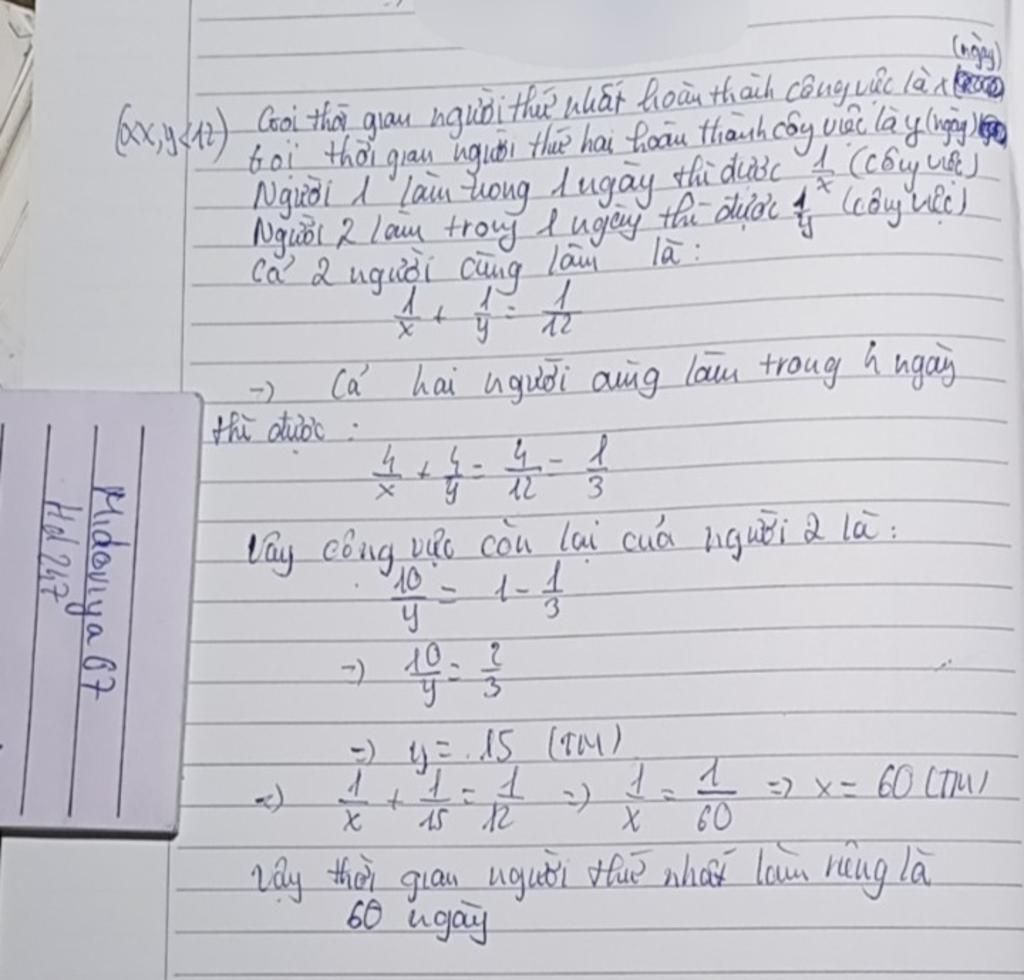 (ngày)
Gọi thời gian người thứ nhất hoàn thành công việc là x
(0<x,y<12)
Gọi thời gian người thứ hai hoàn thành côy việc là y (ngày)
Người 1 làm trong 1 ngày thì được 1/x (côy việc)
Người 2 làm trong 1 ngày thì được 1/y (côy việc)
Cả 2 người cùng làm là:
1/x + 1/y = 1/12
→ Cả hai người cùng làm trong 4 ngày
thì được:
4/x + 4/y = 4/12 = 1/3
Vậy công việc còn lại của người 2 là:
10/y = 1 - 1/3
→ 10/y = 2/3
=> y = 15 (TM)
=> 1/x + 1/15 = 1/12 => 1/x = 1/60 => x = 60 (TM)
Vậy thời gian người thứ nhất làm riêng là
60 ngày
Midaviya 67
Hd 247